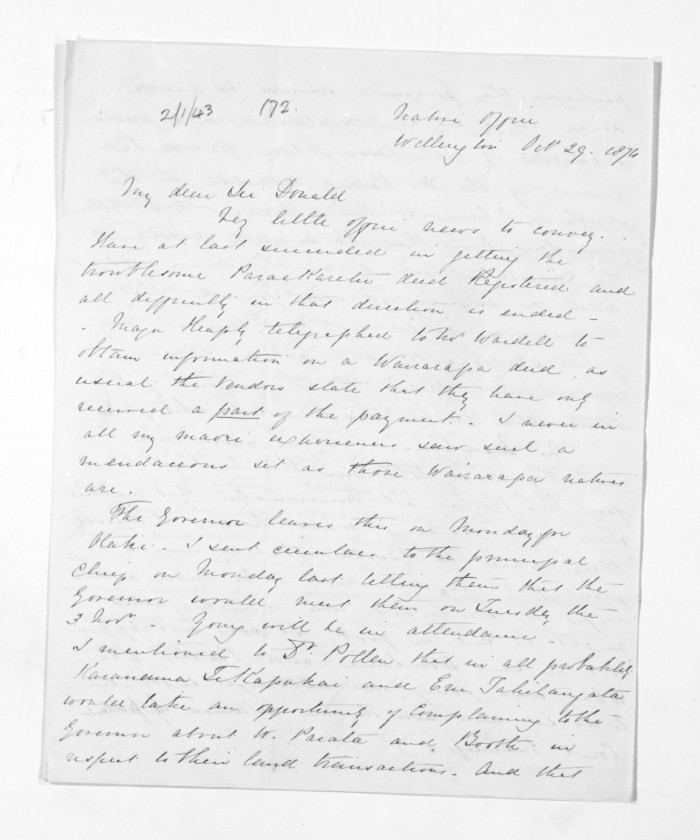 2/1/43 172.
Native Office
Wellington Oct 29. 1874
My dear Sir Donald
Very little office news to convey.
Have at last succeeded in getting the
troublesome Paraekaretu deed Registered and
all difficulty in that direction is ended -
- Major Heaphy telegraphed to Mr Wardell to
obtain information on a Wairarapa deed as
usual the vendors state that they have only
received a part of the payment. I never in
all my maori experiences saw such a
mendaceous set as those Wairarapa natives
are.
The Governor leaves this on Monday for
Otaki. I sent circulars to the principal
Chiefs on Monday last telling them that the
Governor would meet them on Tuesday the
3 Novr - Young will be in attendance -
I mentioned to Dr. Pollen that in all probability
Karanama Te Kapukai and Eru Tahitangata
would take an opportunity of Complaining to the
Governor about W. Parata and Booth in
respect to their land transactions. And that